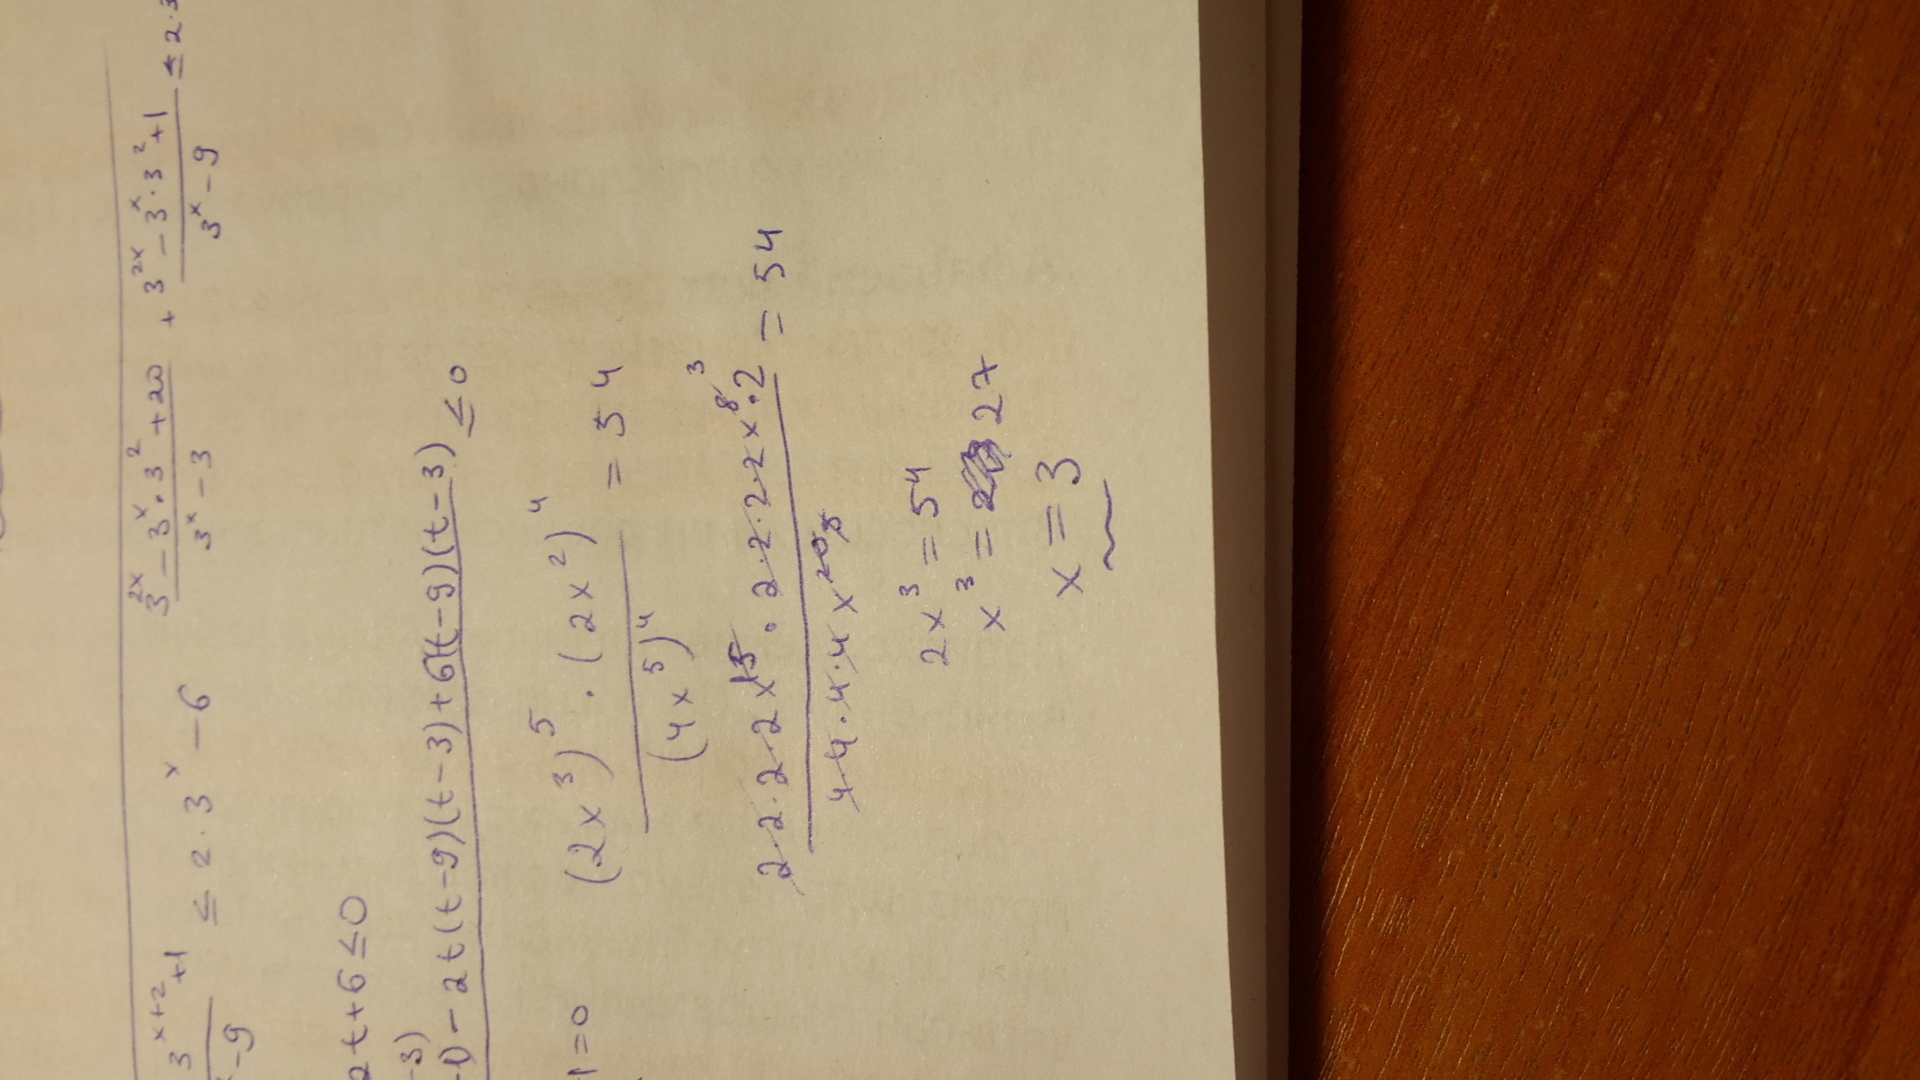 3^{x+2}+1 ≤ 2·3^x-6
-9
\frac{3^{2x}-3^x·3^2+20}{3^x-3} + \frac{3^{2x}-3^x·3^2+1}{3^x-9} ≤ 2·3
2t+6≤0
-3)
-2t(t-9)(t-3)+6(t-9)(t-3) ≤0
1=0
\frac{(2x^3)^5·(2x^2)^4}{(4x^5)^4}=54
\frac{2·2·2·2·2x^{15}·2·2·2·2x^8}{4·4·4·4x^{20}}=54
2x^3=54
x^3=27
x=3